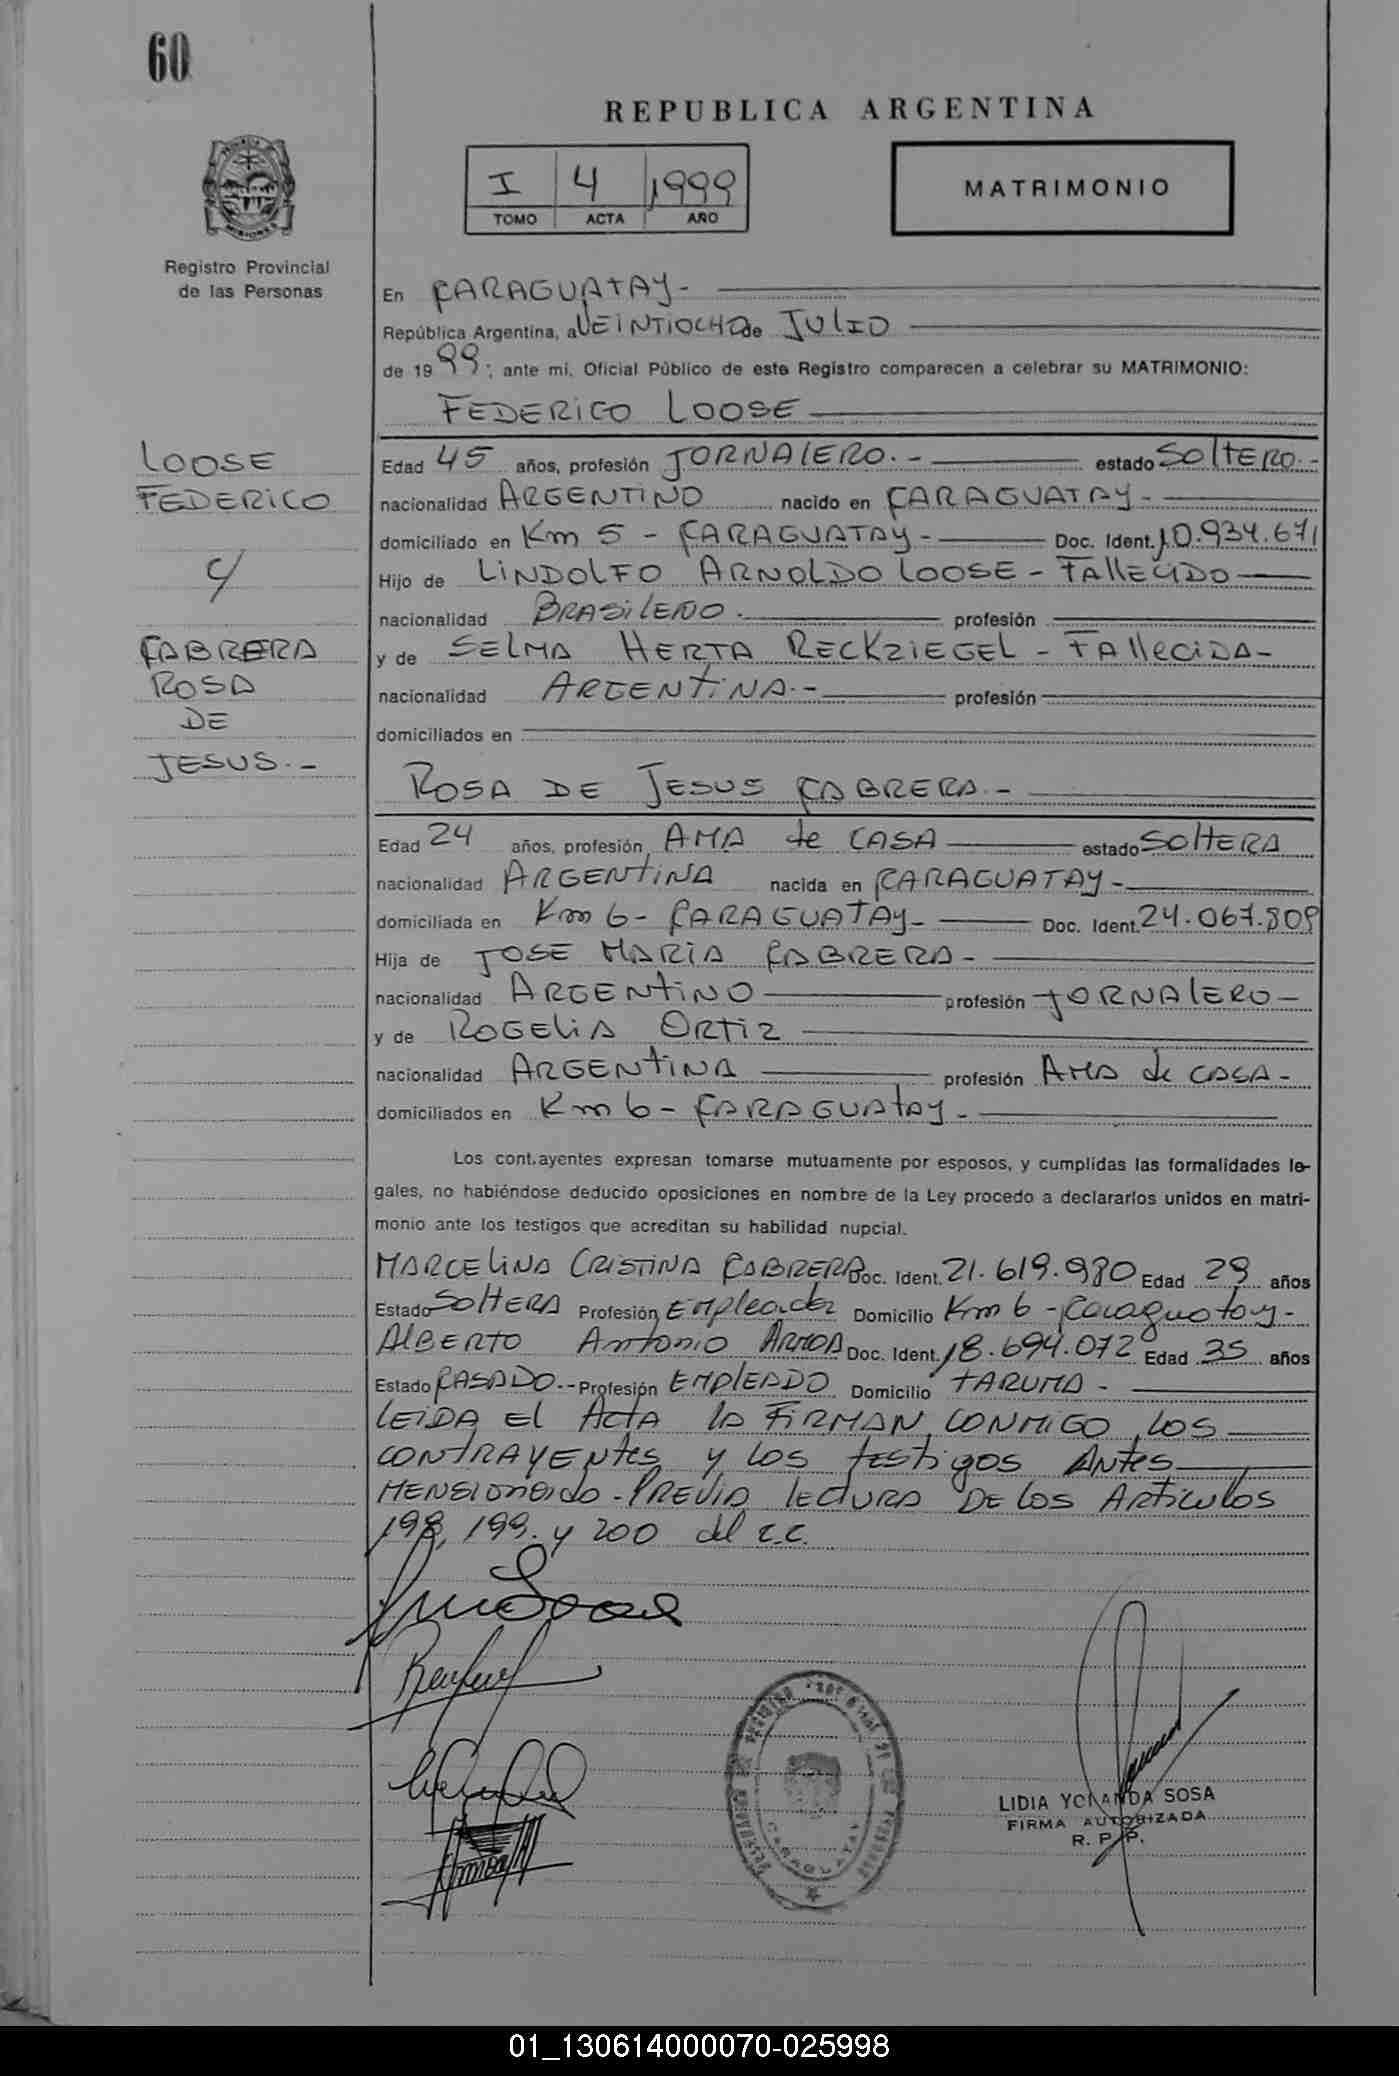 60
REPUBLICA ARGENTINA
I 4 1999
TOMO ACTA AÑO
MATRIMONIO
Registro Provincial
de las Personas
En CARAGUATAY.-
República Argentina, a VEINTIOCHO de JULIO
de 1999; ante mi, Oficial Público de este Registro comparecen a celebrar su MATRIMONIO:
FEDERICO LOOSE
LOOSE
FEDERICO
c/
CABRERA
ROSA
DE
JESUS.-
Edad 45 años, profesión JORNALERO.- estado SOLTERO.-
nacionalidad ARGENTINO nacido en CARAGUATAY-
domiciliado en Km 5 - CARAGUATAY- Doc. Ident. 10.934.671
Hijo de LINDOLFO ARNOLDO LOOSE - FALLECIDO
nacionalidad BRASILEÑO. profesión
y de SELMA HERTA RECKZIEGEL - FALLECIDA-
nacionalidad ARGENTINA.- profesión
domiciliados en
ROSA DE JESUS CABRERA.-
Edad 24 años, profesión AMA de CASA estado SOLTERA
nacionalidad ARGENTINA nacida en CARAGUATAY-
domiciliada en Km 6- CARAGUATAY- Doc. Ident. 24.067.809
Hija de JOSE MARIA CABRERA-
nacionalidad ARGENTINO profesión JORNALERO-
y de ROGELIA ORTIZ
nacionalidad ARGENTINA profesión AMA de CASA-
domiciliados en Km 6- CARAGUATAY-
Los cont.ayentes expresan tomarse mutuamente por esposos, y cumplidas las formalidades le-
gales, no habiéndose deducido oposiciones en nombre de la Ley procedo a declararlos unidos en matri-
monio ante los testigos que acreditan su habilidad nupcial.
MARCELINA CRISTINA CABRERA Doc. Ident. 21.619.980 Edad 29 años
Estado SOLTERA Profesión Empleada Domicilio Km 6 - Caraguatay-
ALBERTO Antonio ARMOA Doc. Ident. 18.694.072 Edad 35 años
Estado CASADO.- Profesión EMPLEADO Domicilio TARUMA-
LEIDA EL ACTA LA FIRMAN CONMIGO LOS
CONTRAYENTES y LOS testigos ANTES
MENSIONADO-PREVIA LECTURA DE LOS ARTICULOS
198, 199. y 200 del c.c.
CARAGUATAY
LIDIA YOLANDA SOSA
FIRMA AUTORIZADA
R. P. P.
01_130614000070-025998